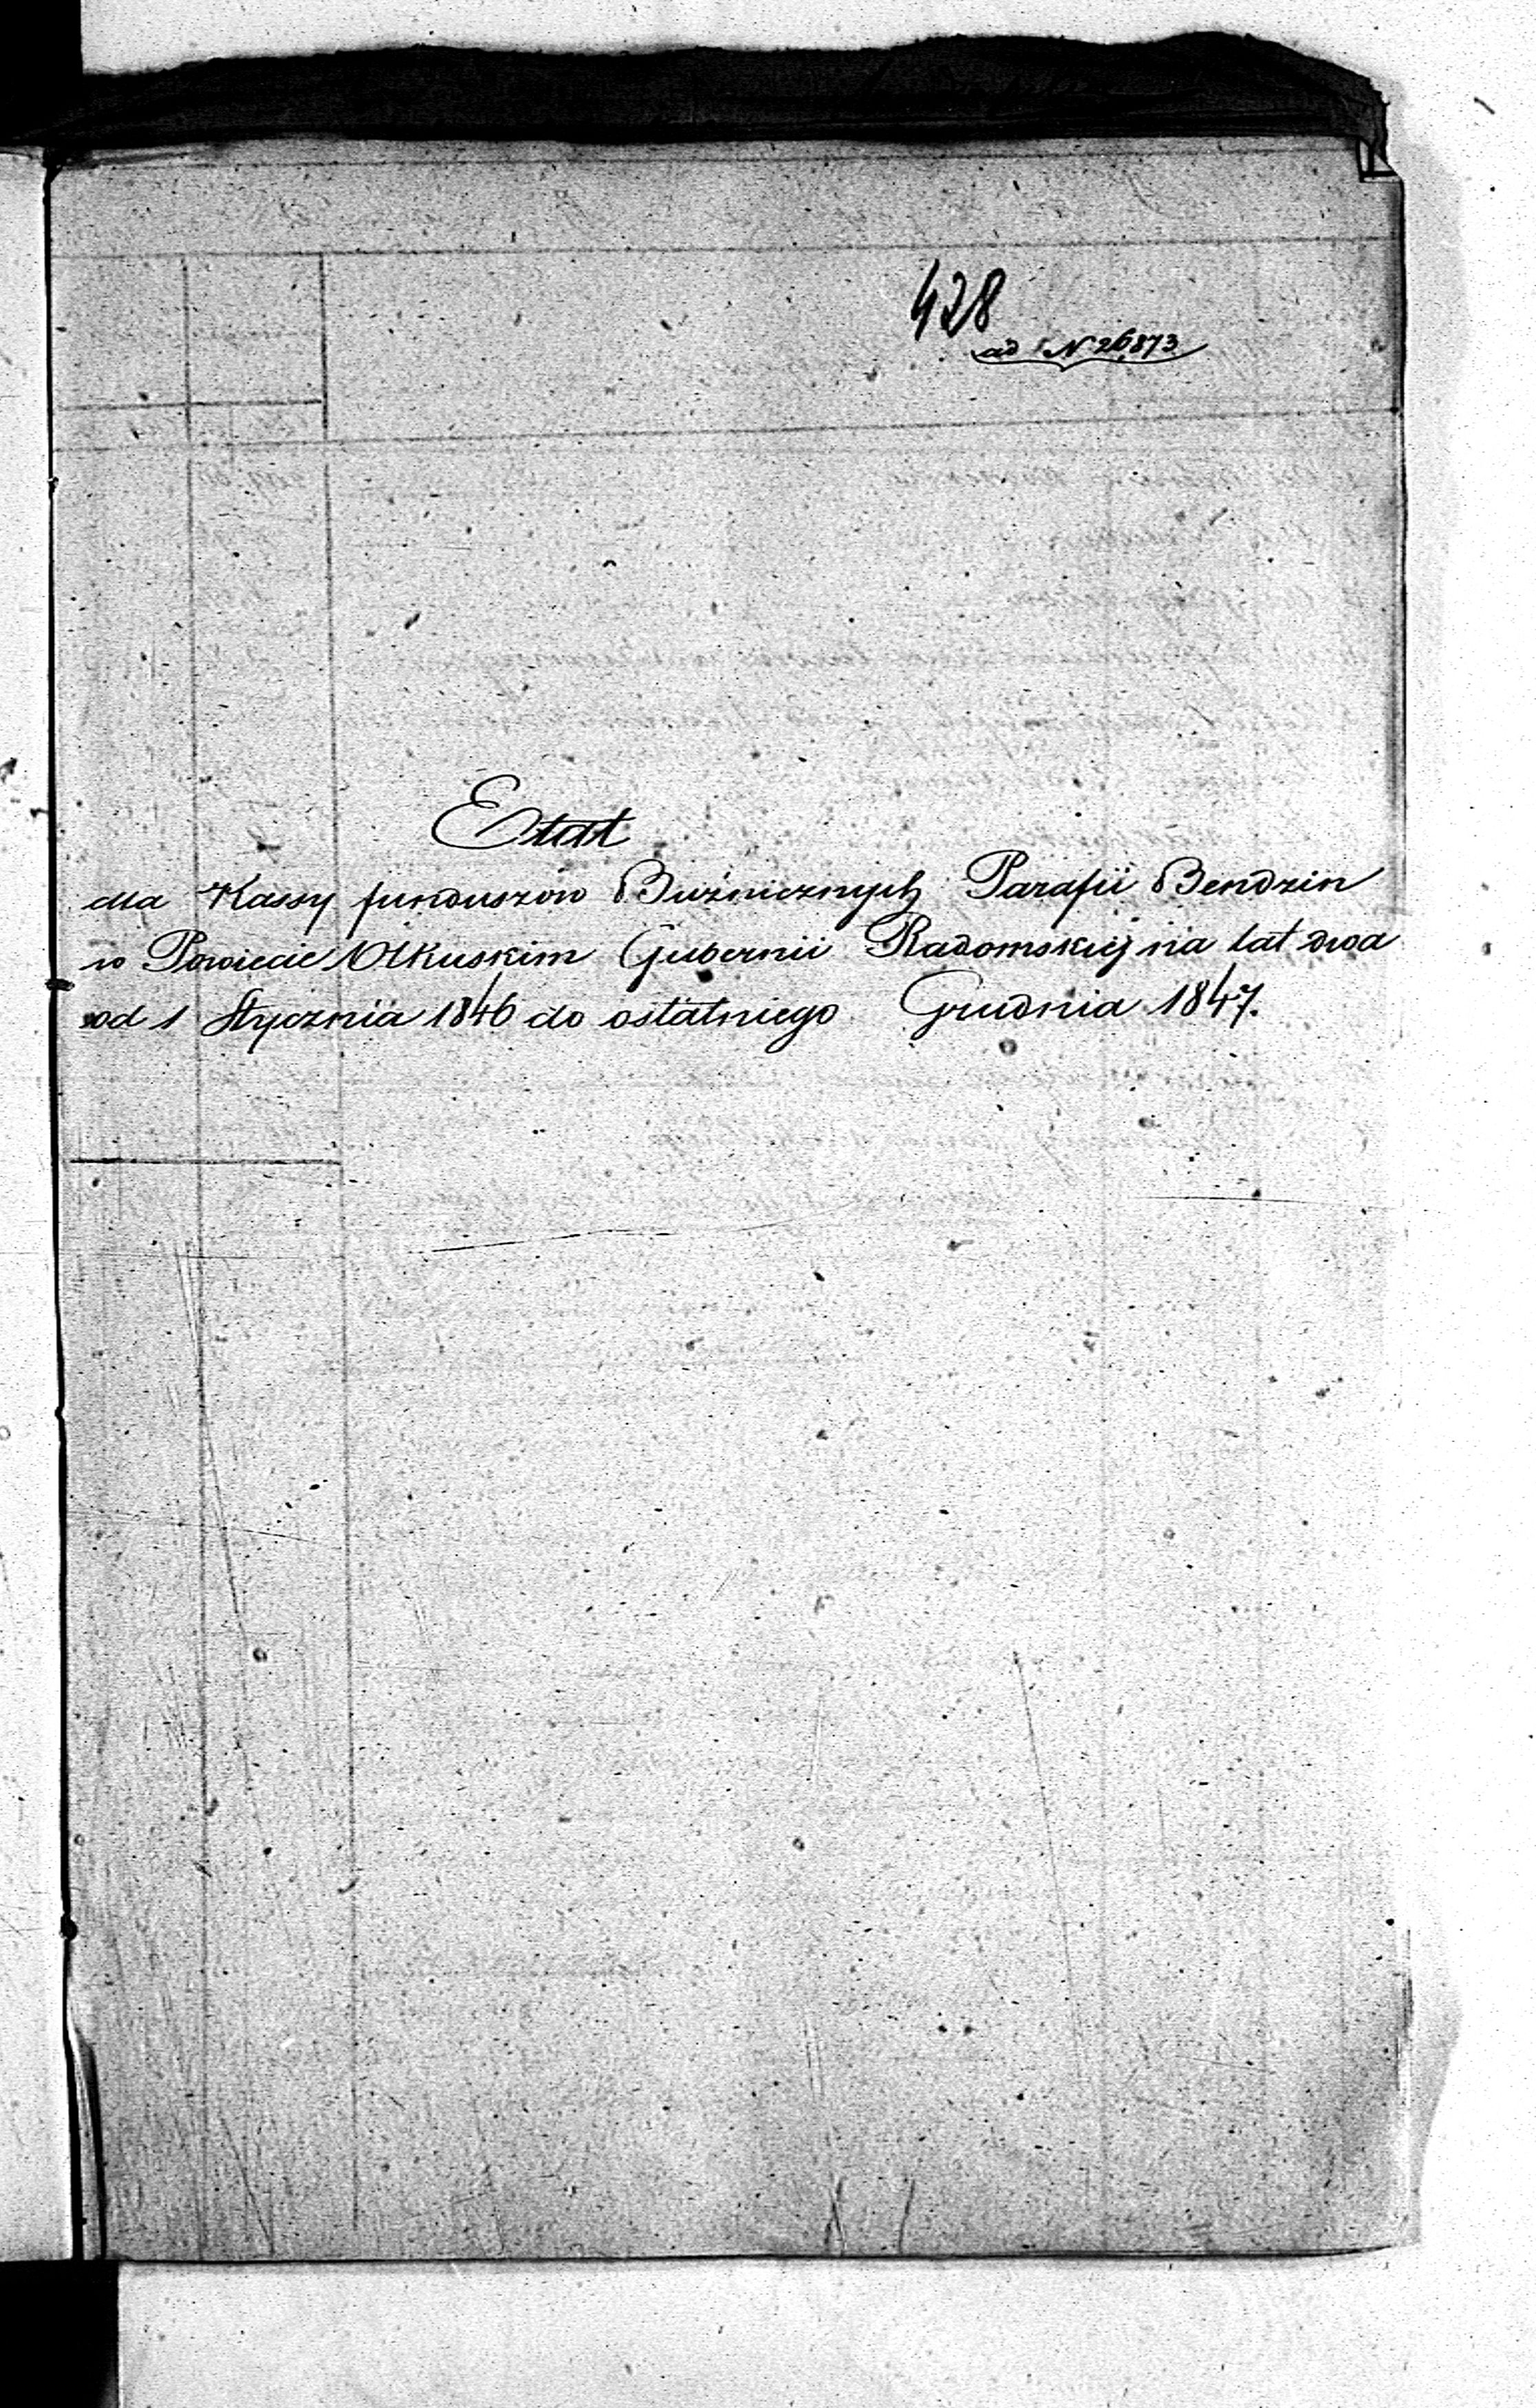 428
ad N 26873
Etat
dla Kassy funduszów Bużnicznych Parafii Bendzin
w Powiecie Olkuskim Gubernii Radomskiej na lat dwa
od 1 Stycznia 1846 do ostatniego Grudnia 1847.